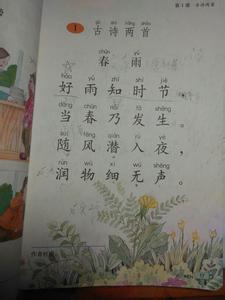 第1课 古诗两首
1
gǔ shī liǎng shǒu
古诗两首
chūn yǔ
春雨
hǎo yǔ zhī shí jié
好雨知时节，
dāng chūn nǎi fā shēng
当春乃发生。
suí fēng qián rù yè
随风潜入夜，
rùn wù xì wú shēng
润物细无声。